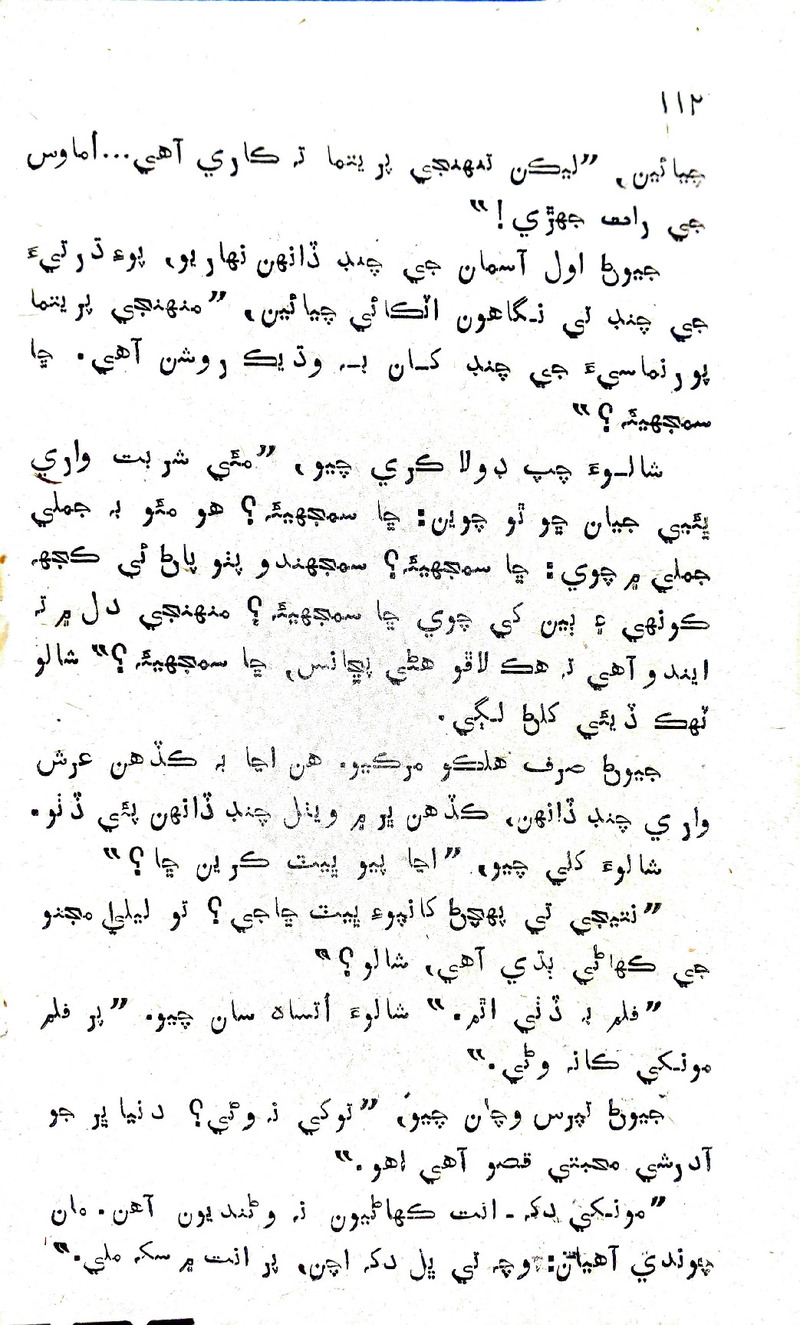 ۱۱۲
چيائين، ”ليڪن تنهنجي پريتما تہ ڪاري آهي...اُماوس
جي رات جهڙي!“
جيوڻ اول آسمان جي چنڊ ڏانهن نهاريو، پوءِ ڌرتيءَ
جي چنڊ تي نگاهون اٽڪائي چيائين، ”منهنجي پريتما
پورنماسيءَ جي چنڊ کان بہ وڌيڪ روشن آهي. ڇا
سمجهيئہ؟“
شالوءَ چپ ڊولا ڪري چيو، ”مٺي شربت واري
ڀٽيي جيان ڇو ٿو چوين: ڇا سمجهيئہ؟ هو مئو بہ جملي
جملي ۾ چوي: ڇا سمجهيئہ؟ سمجهندو پنو پاڻ ئي ڪجهہ
ڪونهي ۽ ٻين کي چوي ڇا سمجهيئہ؟ منهنجي دل ۾ تہ
ايندو آهي تہ هڪ لاڦو هڻي پڇانس، ڇا سمجهيئہ؟“ شالو
ٽهڪ ڏيئي کلڻ لڳي.
جيوڻ صرف هلڪو مرڪيو. هن اڃا بہ ڪڏهن عرش
واري چنڊ ڏانهن، ڪڏهن ڀر ۾ ويٺل چنڊ ڏانهن پئي ڏٺو.
شالوءَ کلي چيو، ”اڃا پيو ڀيٽ ڪرين ڇا؟“
”نتيجي تي پهچڻ کانپوءِ ڀيٽ ڇاجي؟ تو ليليٰ مجنو
جي ڪهاڻي ٻڌي آهي، شالو؟“
”فلم بہ ڏٺي اٿم.“ شالوءَ اُتساہ سان چيو. ”پر فلم
مونکي ڪانہ وڻي.“
جيوڻ تپرس وچان چيو، ”توکي نہ وڻي؟ دنيا ڀر جو
آدرشي محبتي قصو آهي اهو.“
”مونکي دکہ ـ انت ڪهاڻيون نہ وڻنديون آهن. مان
چوندي آهيان: وچہ تي ڀل دکہ اچن، پر انت ۾ سکہ ملي.“